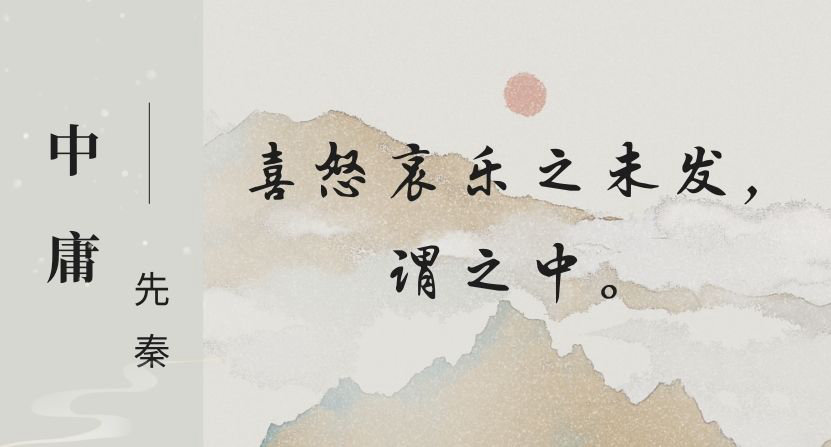 中庸
先秦
喜怒哀乐之未发，
谓之中。